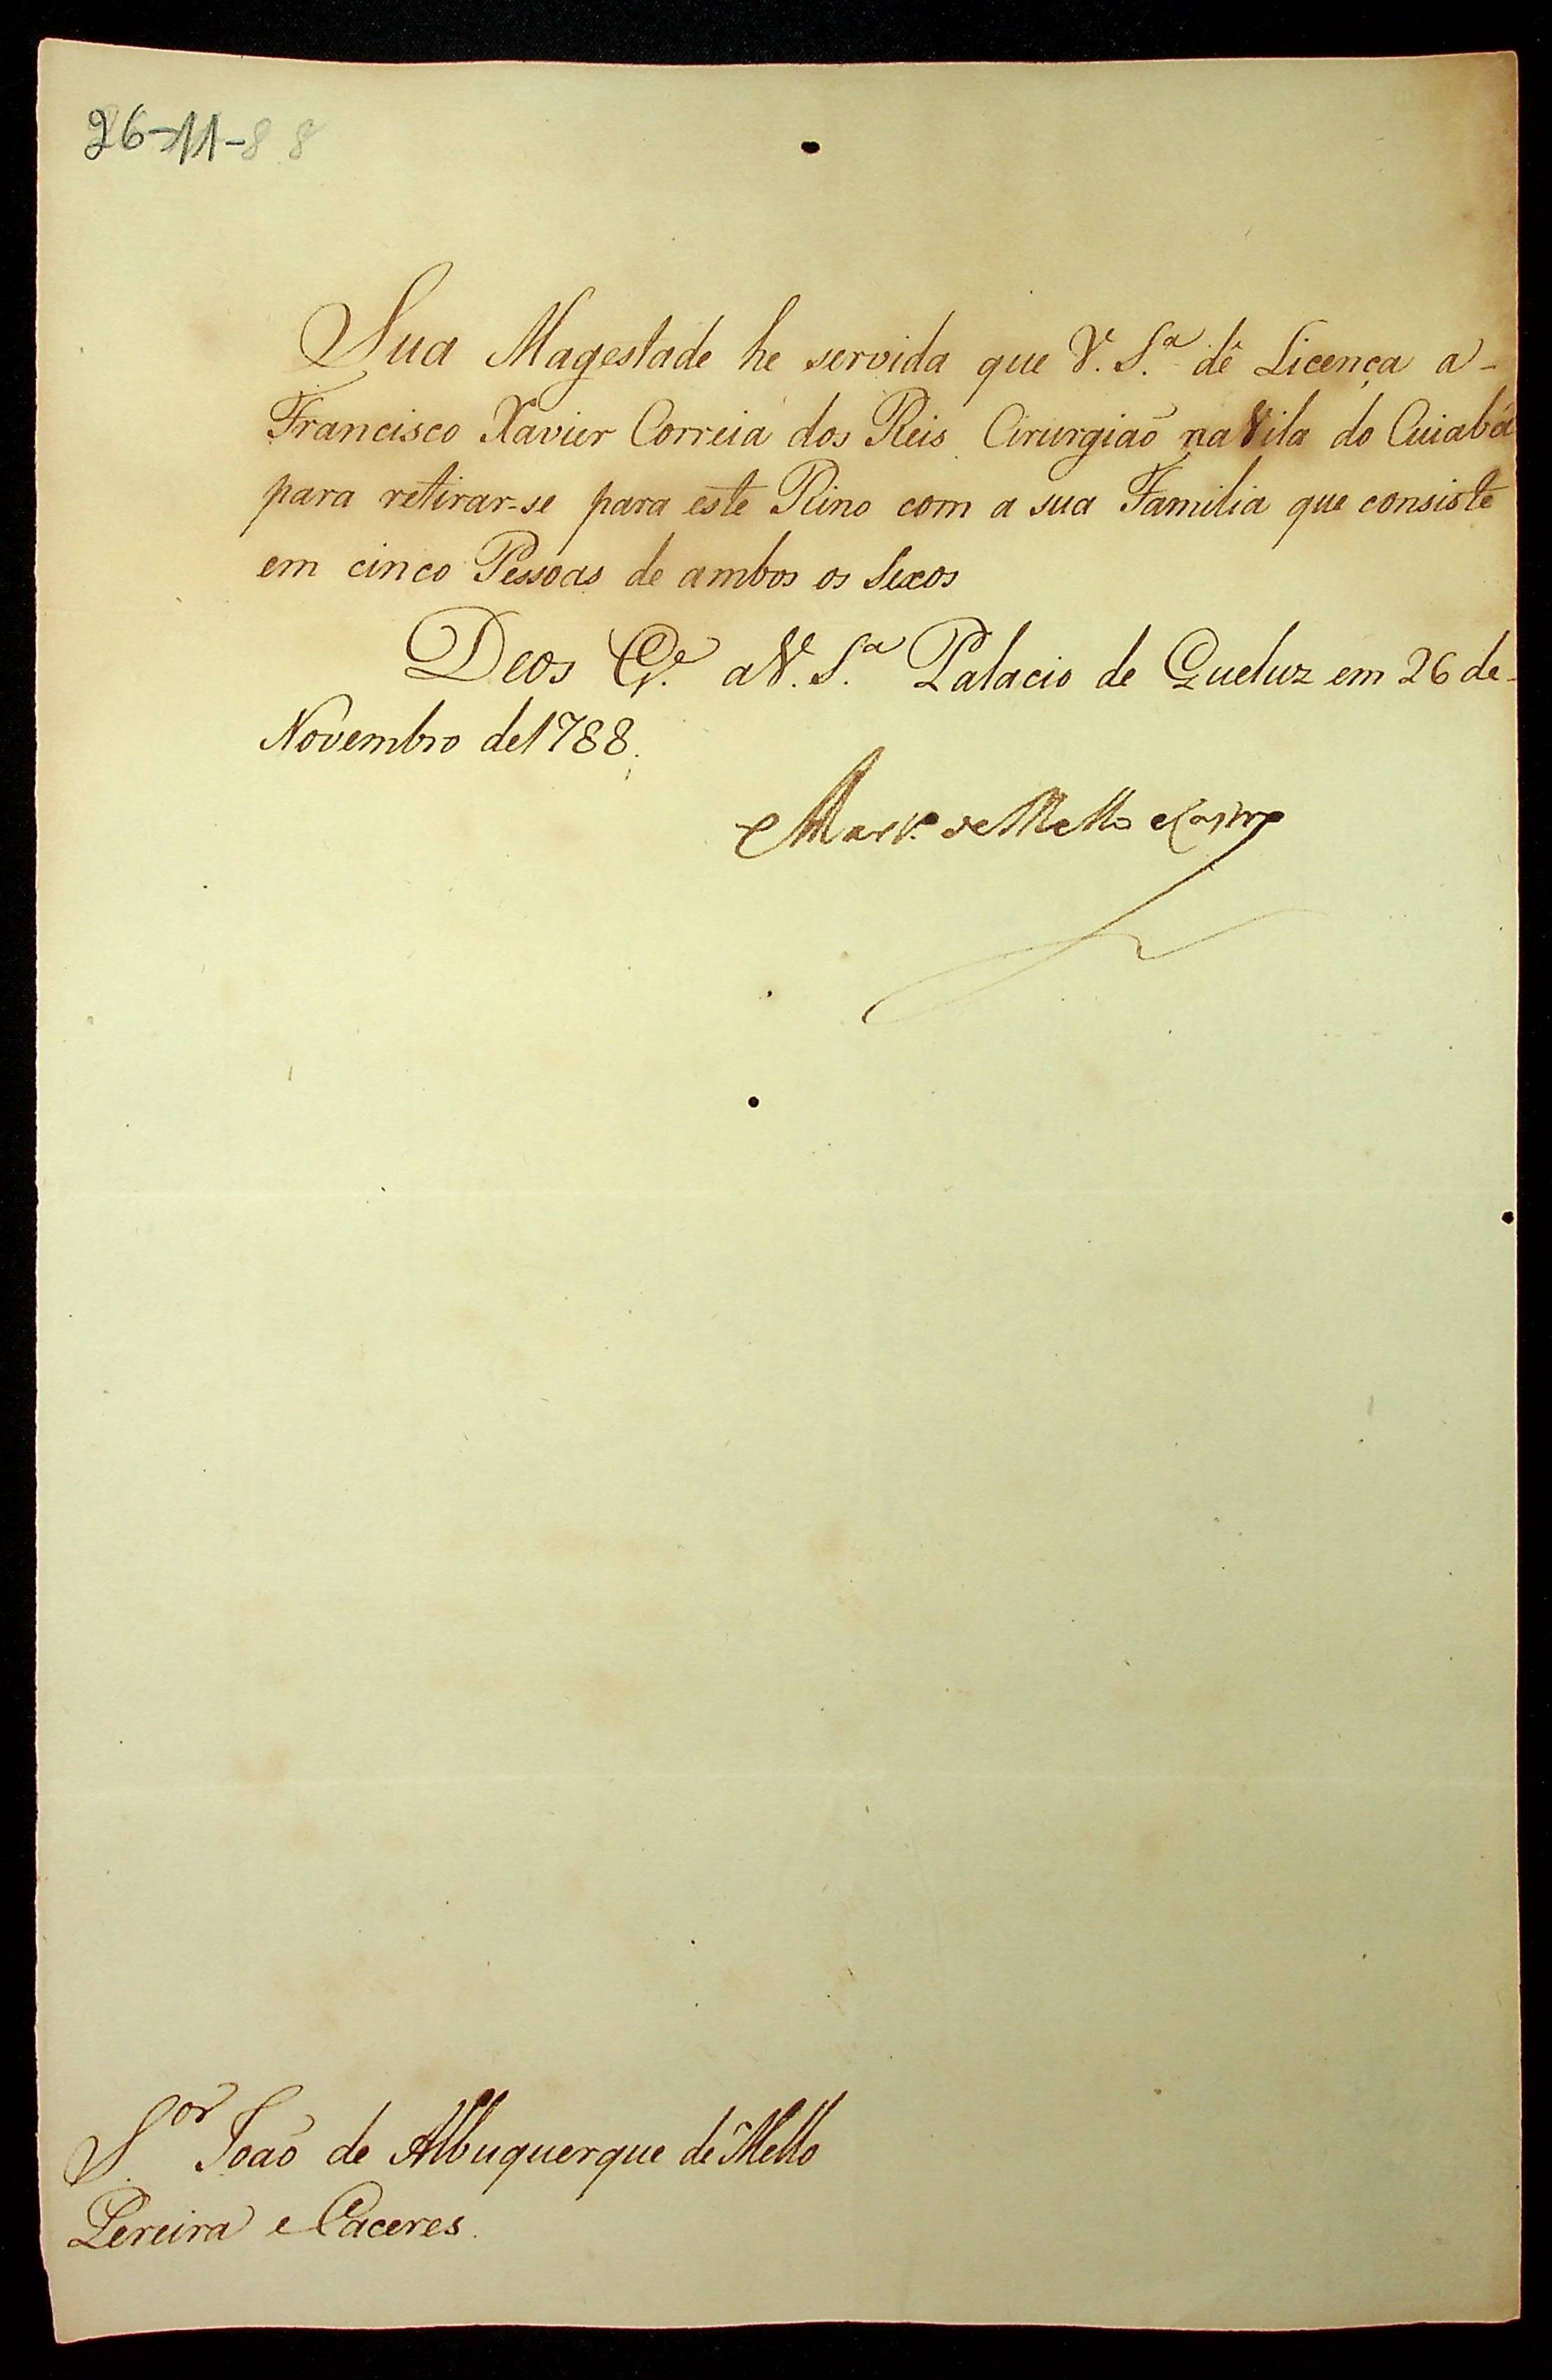 26-11-88
Sua Magestade he servida que V. S.ª dê Licença a-
Francisco Xavier Correia dos Reis Cirurgiaõ na Vila do Cuiabá
para retirar-se para este Rino com a sua Familia que consiste
em cinco Pessoas de ambos os Sexos
Deos G.e a V. S.ª Palacio de Queluz em 26 de-
Novembro de 1788.
Mart.º de Mello e Castro
S.or Joaõ de Albuquerque de Mello
Pereira e Caceres.